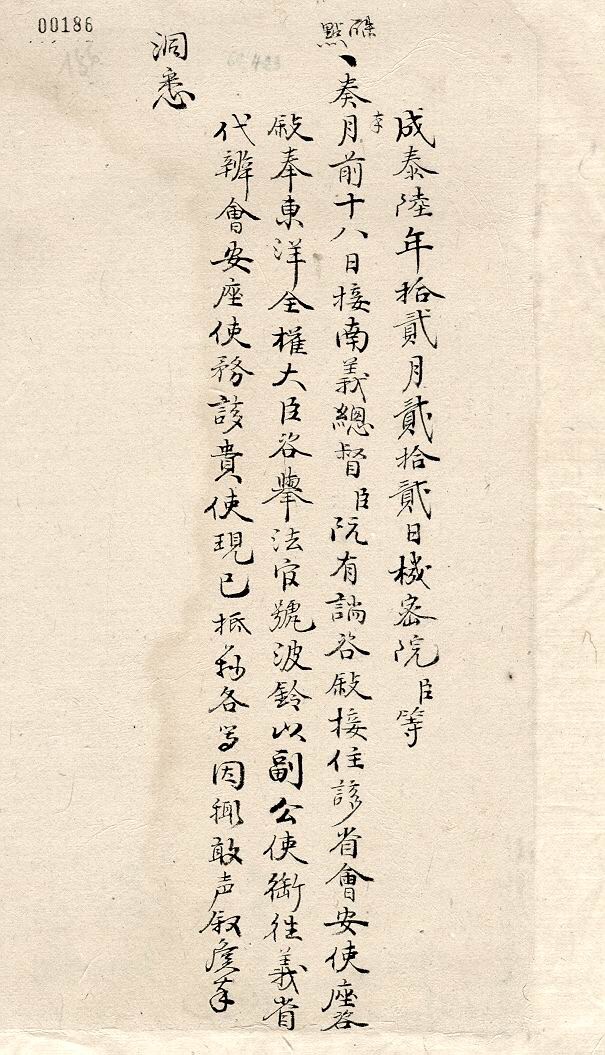 00186
硃
點
成泰陸年拾貳月貳拾貳日機密院臣等
奏本月前十八日接南義總督臣阮有咨敘接住該省會安使座咨
敘奉東洋全權大臣咨舉法官號波鈴以副公使銜往義省
代辨會安座使務該貴使現已抵各等因輒敢声叙虔奉
洞悉